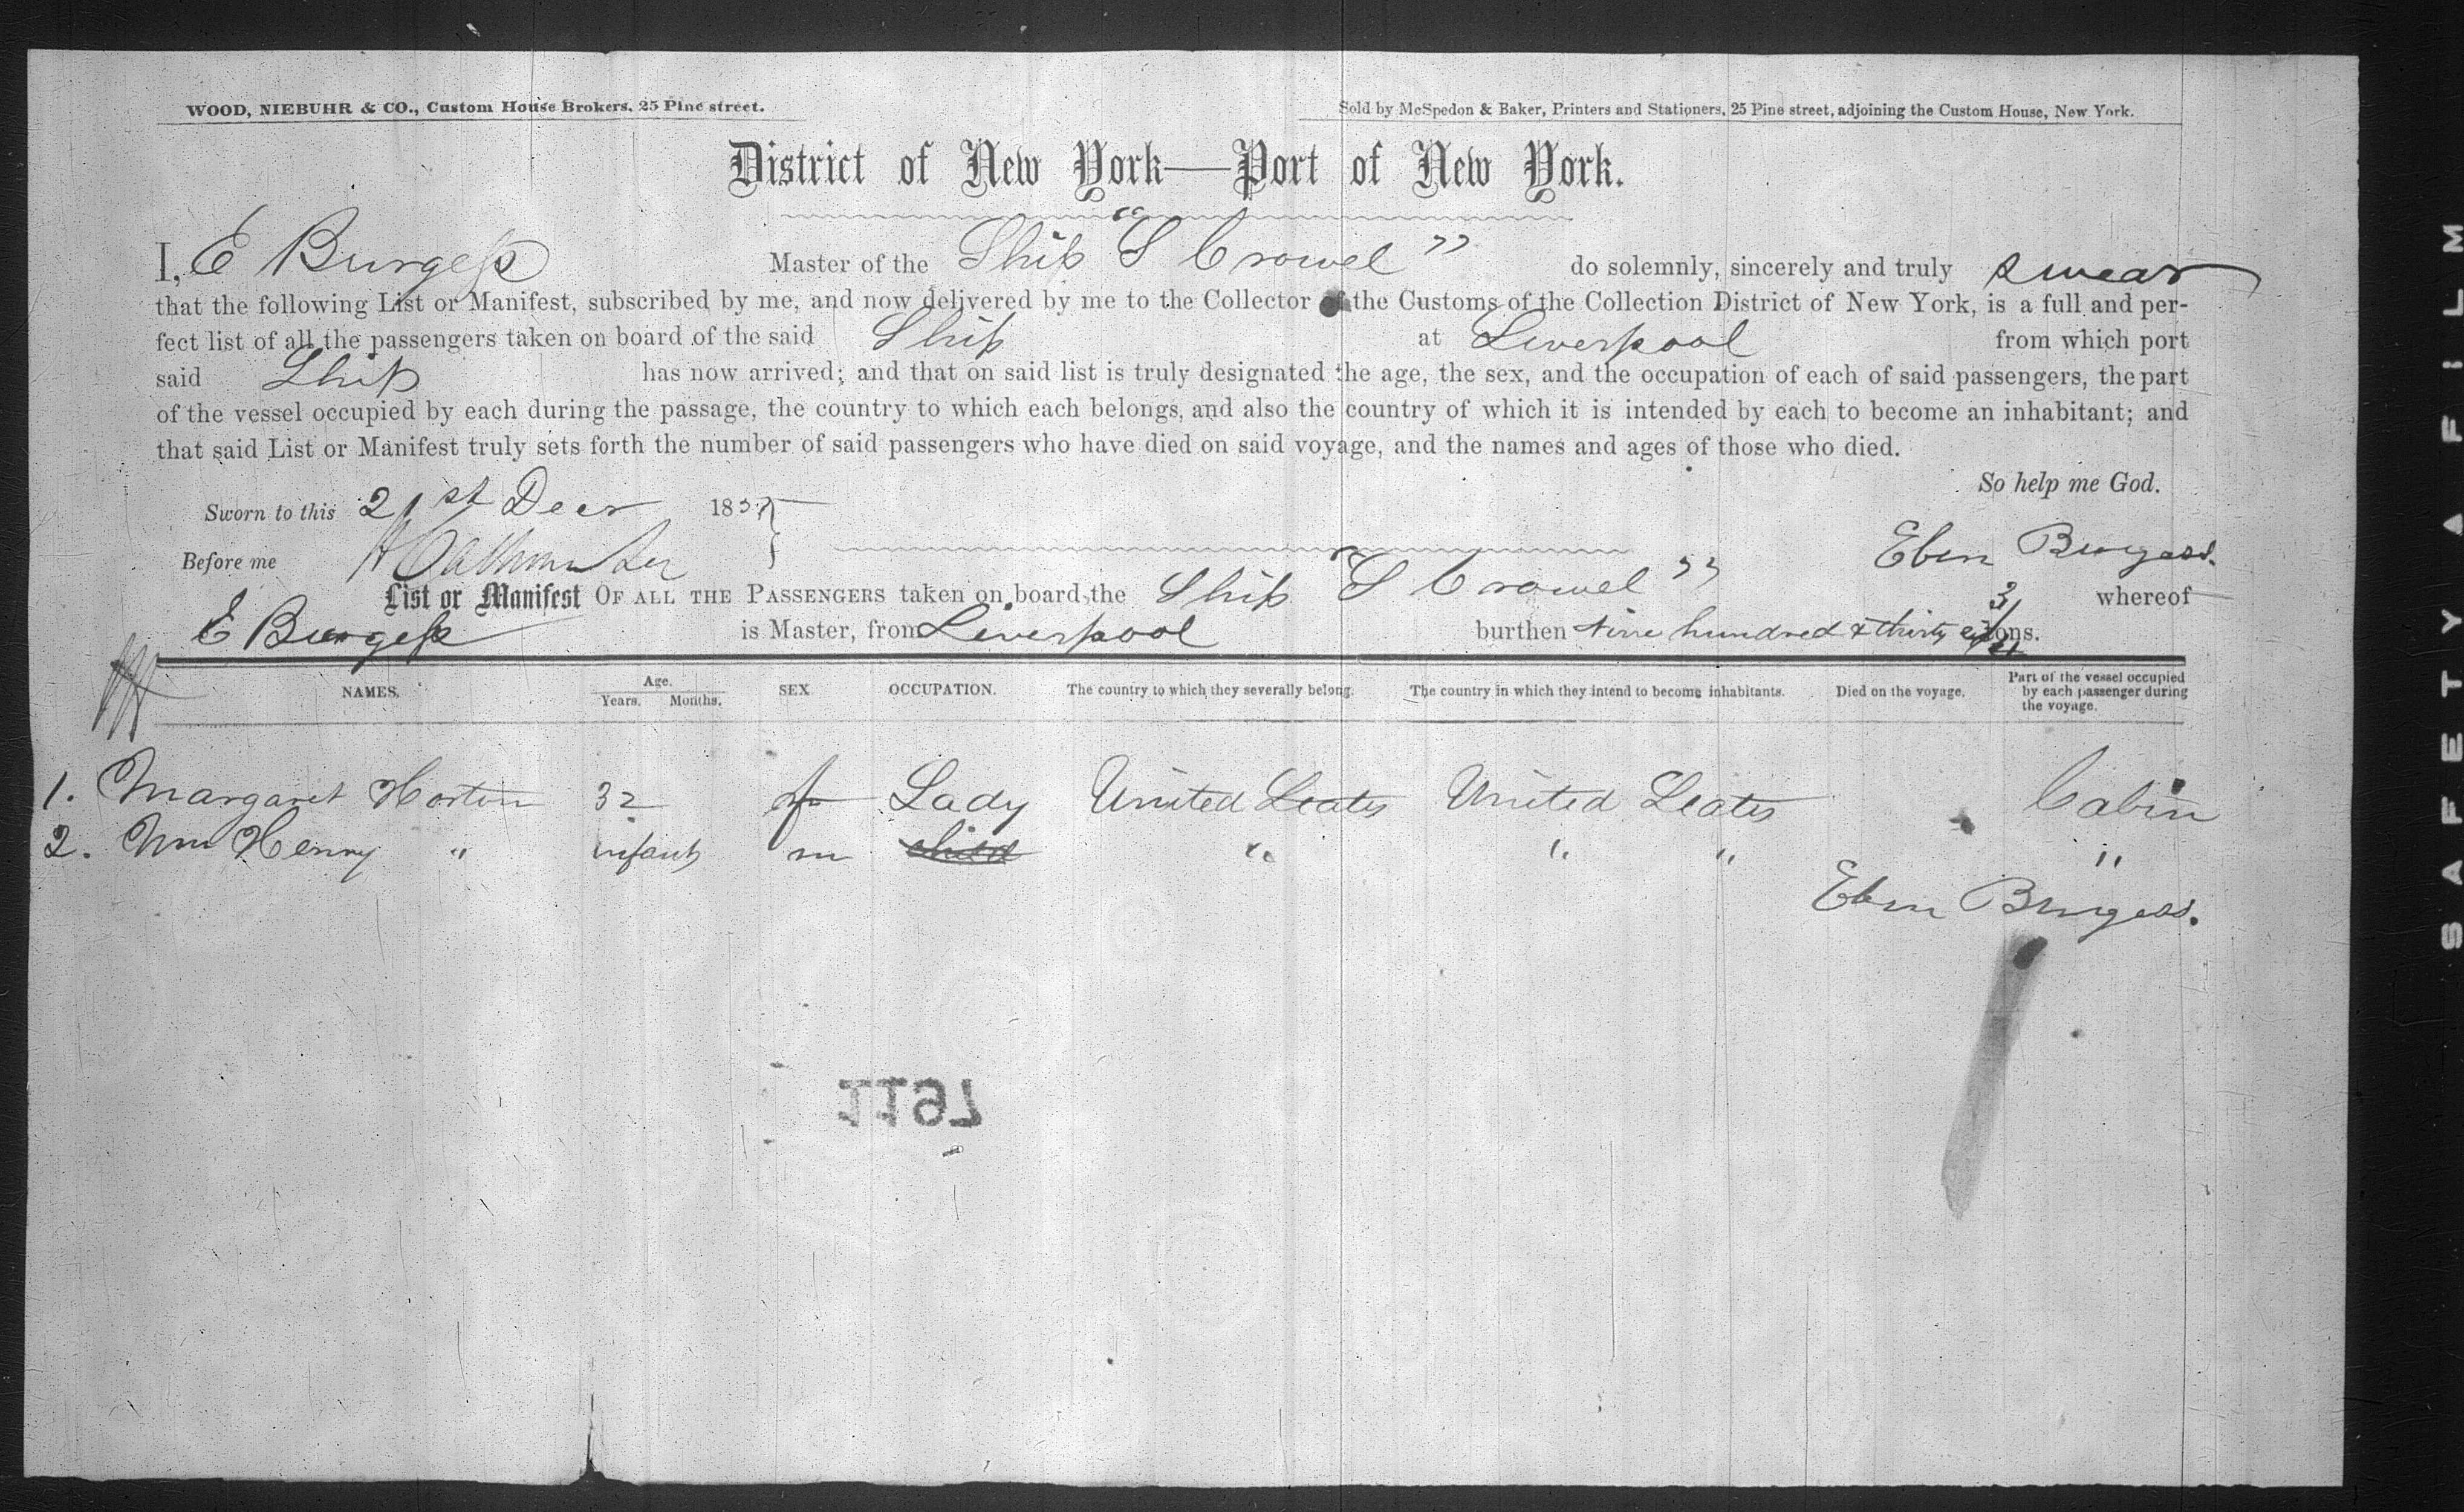 WOOD, NIEBUHR & CO., Custom House Brokers, 25 Pine street.
Sold by McSpedon & Baker, Printers and Stationers, 25 Pine street, adjoining the Custom House, New York.
District of New York—Port of New York.
I, E Burgess Master of the Ship "S Crowel" do solemnly, sincerely and truly swear
that the following List or Manifest, subscribed by me, and now delivered by me to the Collector of the Customs of the Collection District of New York, is a full and per-
fect list of all the passengers taken on board of the said Ship at Liverpool from which port
said Ship has now arrived; and that on said list is truly designated the age, the sex, and the occupation of each of said passengers, the part
of the vessel occupied by each during the passage, the country to which each belongs, and also the country of which it is intended by each to become an inhabitant; and
that said List or Manifest truly sets forth the number of said passengers who have died on said voyage, and the names and ages of those who died.
So help me God.
Sworn to this 21st Decr 1857
Before me
Eben Burgess.
List or Manifest OF ALL THE PASSENGERS taken on board the Ship "S Crowel" whereof
E Burgess is Master, from Liverpool burthen Nine hundred & thirty tons.
NAMES. Age. Years. Months. SEX OCCUPATION. The country to which they severally belong. The country in which they intend to become inhabitants. Died on the voyage. Part of the vessel occupied by each passenger during the voyage.
1. Margaret Horton 32 f Lady United States United States Cabin
2. Wm Henry " infant m child " " " "
Eben Burgess.
1197
SAFETY A FILM